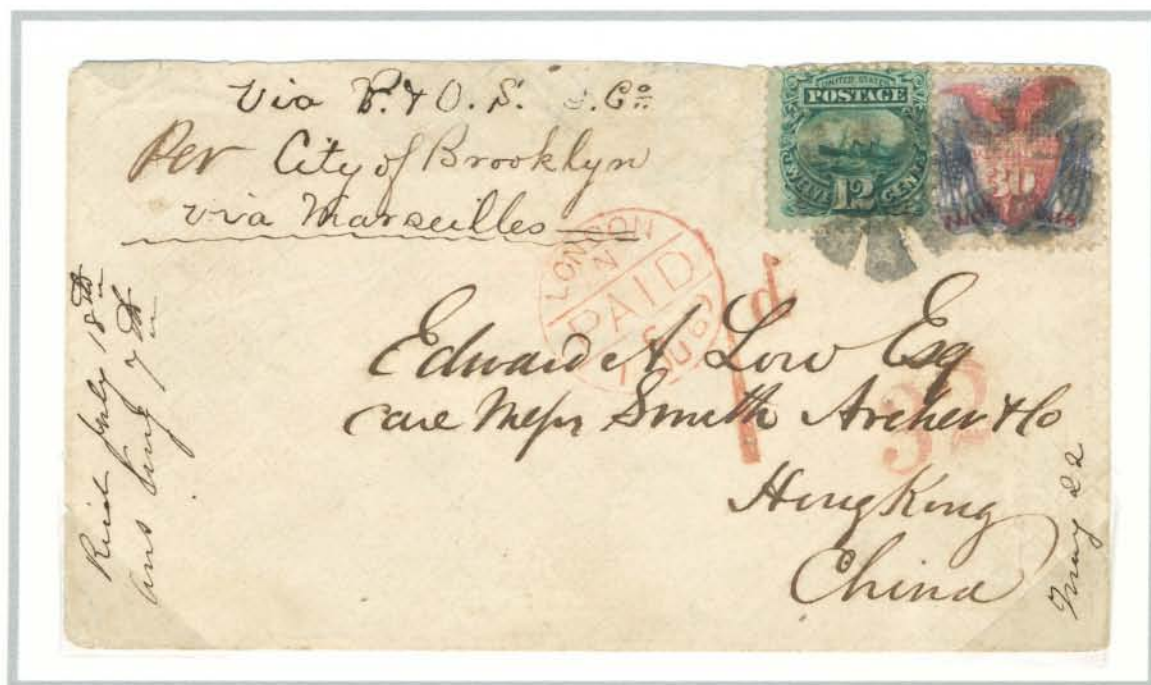 Via P. & O. S. S. Co.
Per City of Brooklyn
via Marseilles
UNITED STATES
POSTAGE
TWELVE CENTS
12
30
LONDON
N
PAID
6
JU
1 d
32
Edward A Low Esq
care Messrs Smith Archer & Co
Hong Kong
China
Recd July 18th
Ans Aug 7th
May 22